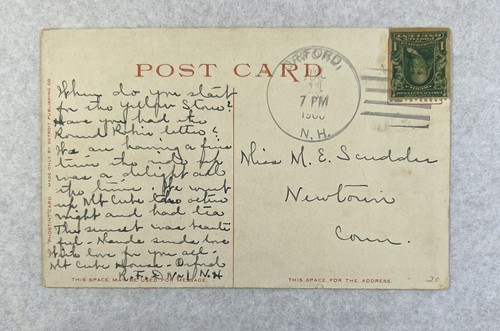 POST CARD
"PHOSTINT CARD" MADE ONLY BY DETROIT PUBLISHING CO.
When do you start
for the Yellow Stone?
Have you had the
Round Robin letter?
We are having a fine
time the ride up
was a delight all
the time. We went
up Mt Cube
night and had tea
The sunset was beauti
ful - sends love
With love for you all -
Mt Cube House - Orford
R.F.D No 1 N.H
THIS SPACE MAY BE USED FOR MESSAGE.
ORFORD,
7 PM
N.H.
1
Miss M. E. Scudder
Newtown
Conn.
THIS SPACE FOR THE ADDRESS.
20